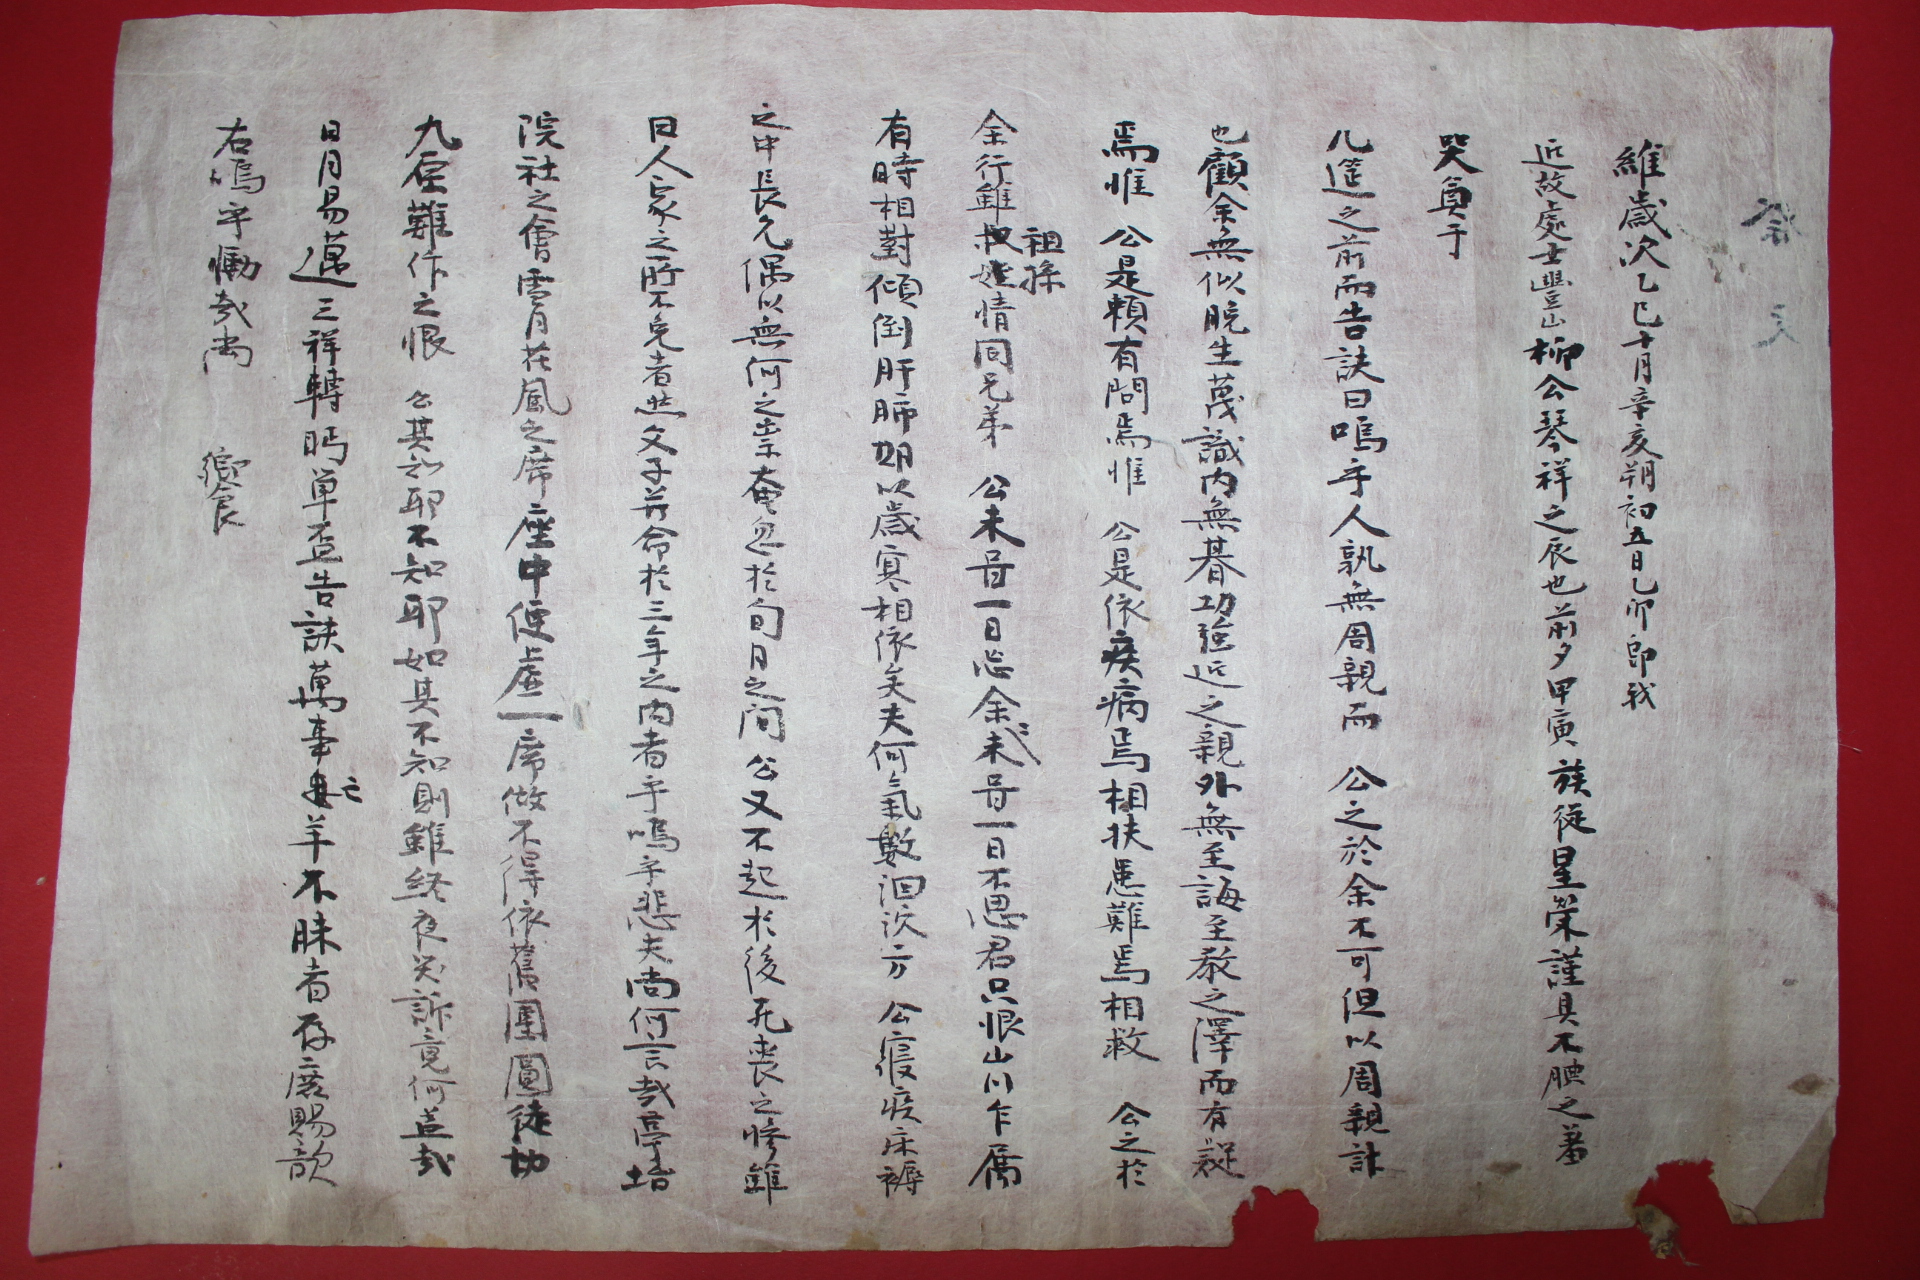 祭文
維歲次乙巳十月辛亥朔初五日乙卯卽我
近故處士豐山柳公琴祥之辰也前夕甲寅族從星榮謹具不腆之著
哭負于
几筵之前而告訣曰嗚乎人孰無周親而 公之於余不可但以周親計
也顧余無似晩生蔑識內無朞功強近之親外無至誨至敎之澤而有疑
焉惟 公是賴有問焉惟 公是依疾病焉相扶患難焉相救 公之於
余行雖叔姪祖孫情同兄弟 公未嘗一日忘余余未嘗一日不思君只恨山川乍厲
有時相對傾倒肝肺期以歲寒相依矣夫何氣數洄沴方 公寢疾床褥
之中長兄偶以無何之祟奄忽於旬月之間 公又不起於後死喪之慘雖
曰人家之所不免者豈父子幷命於三年之內者乎嗚乎悲夫尚何言哉亭坮
院社之會雪月花風之席座中便虛一席做不得依舊團圓徒切
九原難作之恨 公其知耶不知耶如其不知則雖終夜哭訴竟何益哉
日月易邁三祥轉眄單盃告訣萬事亡羊不昧者存庶賜歆
右嗚乎慟哉尚 饗